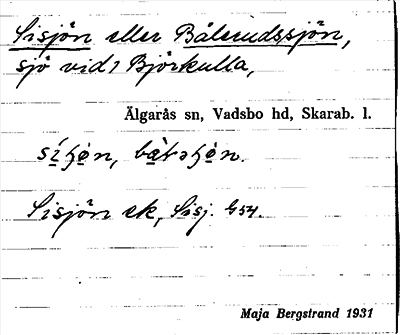 Sisjön eller Bålerudssjön,
sjö vid 1 Björkulla,
Älgarås sn, Vadsbo hd, Skarab. l.
Sisjön ek, Sisj. G54.
Maja Bergstrand 1931